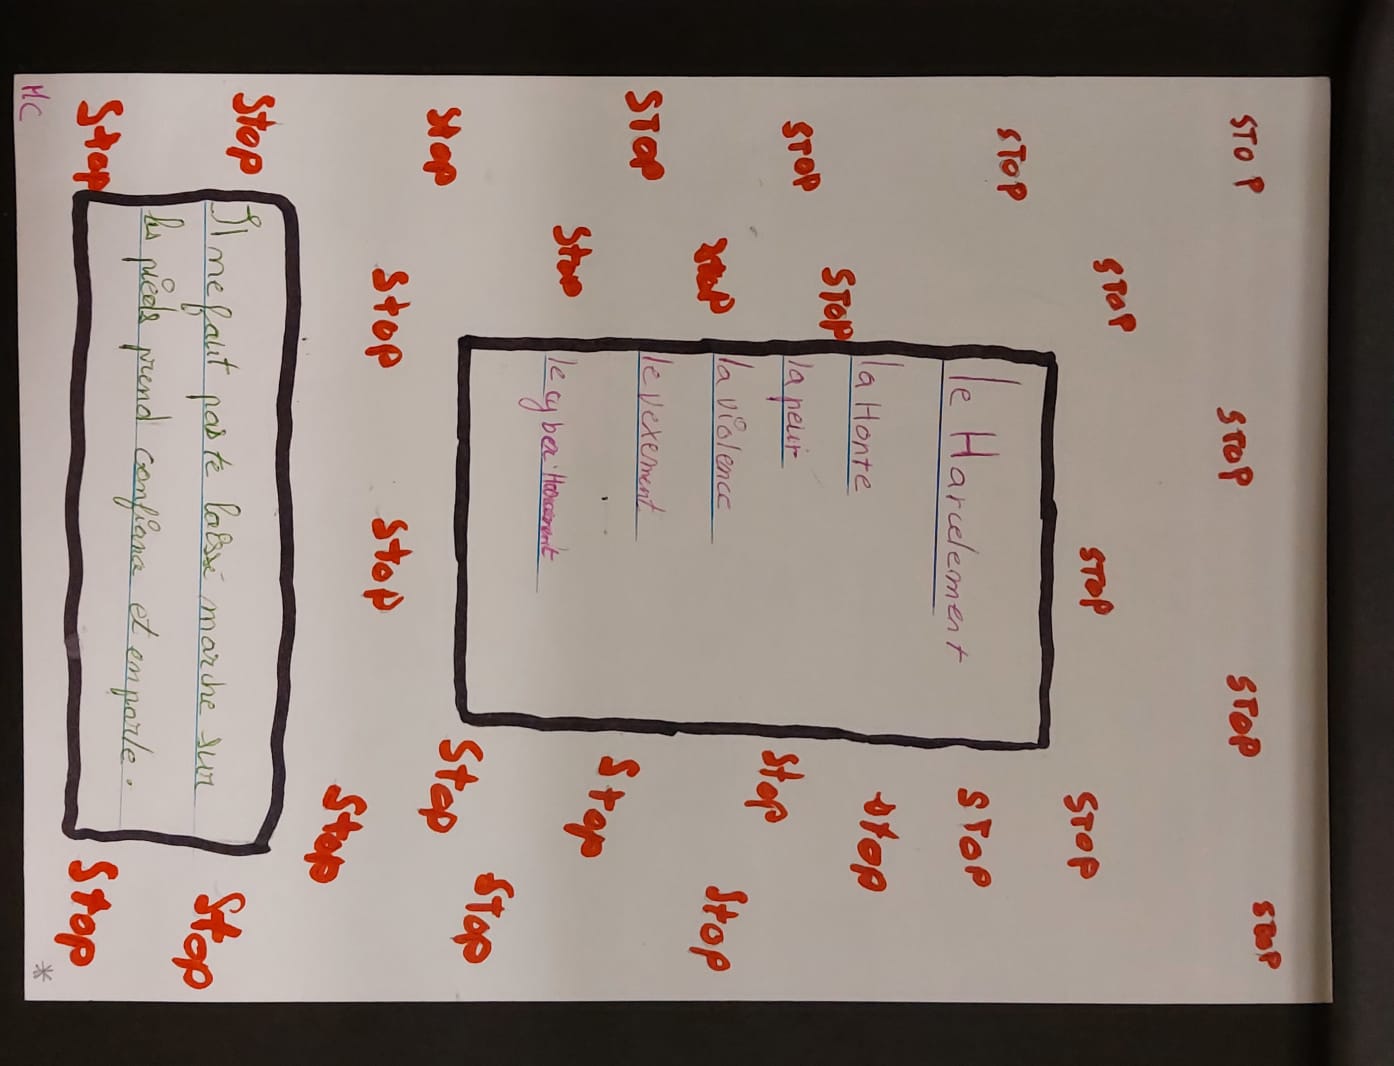 STOP STOP STOP STOP
STOP STOP STOP
STOP
STOP
le Harcelement
STOP
STOP
la Honte
STOP
la peur
Stop
STOP
la violence
Stop
STOP
le vexement
Stop
Stop
le cyber
Stop
Stop
Stop
Stop Stop
Stop
Stop
Il ne faut pas te laissé marche sur
les pieds prend confiance et en parle.
Stop
Stop
Stop
MC
*